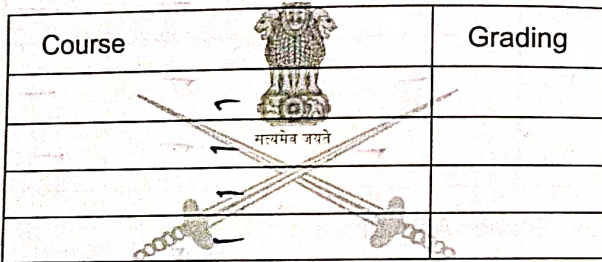 Course Grading
सत्यमेव जयते